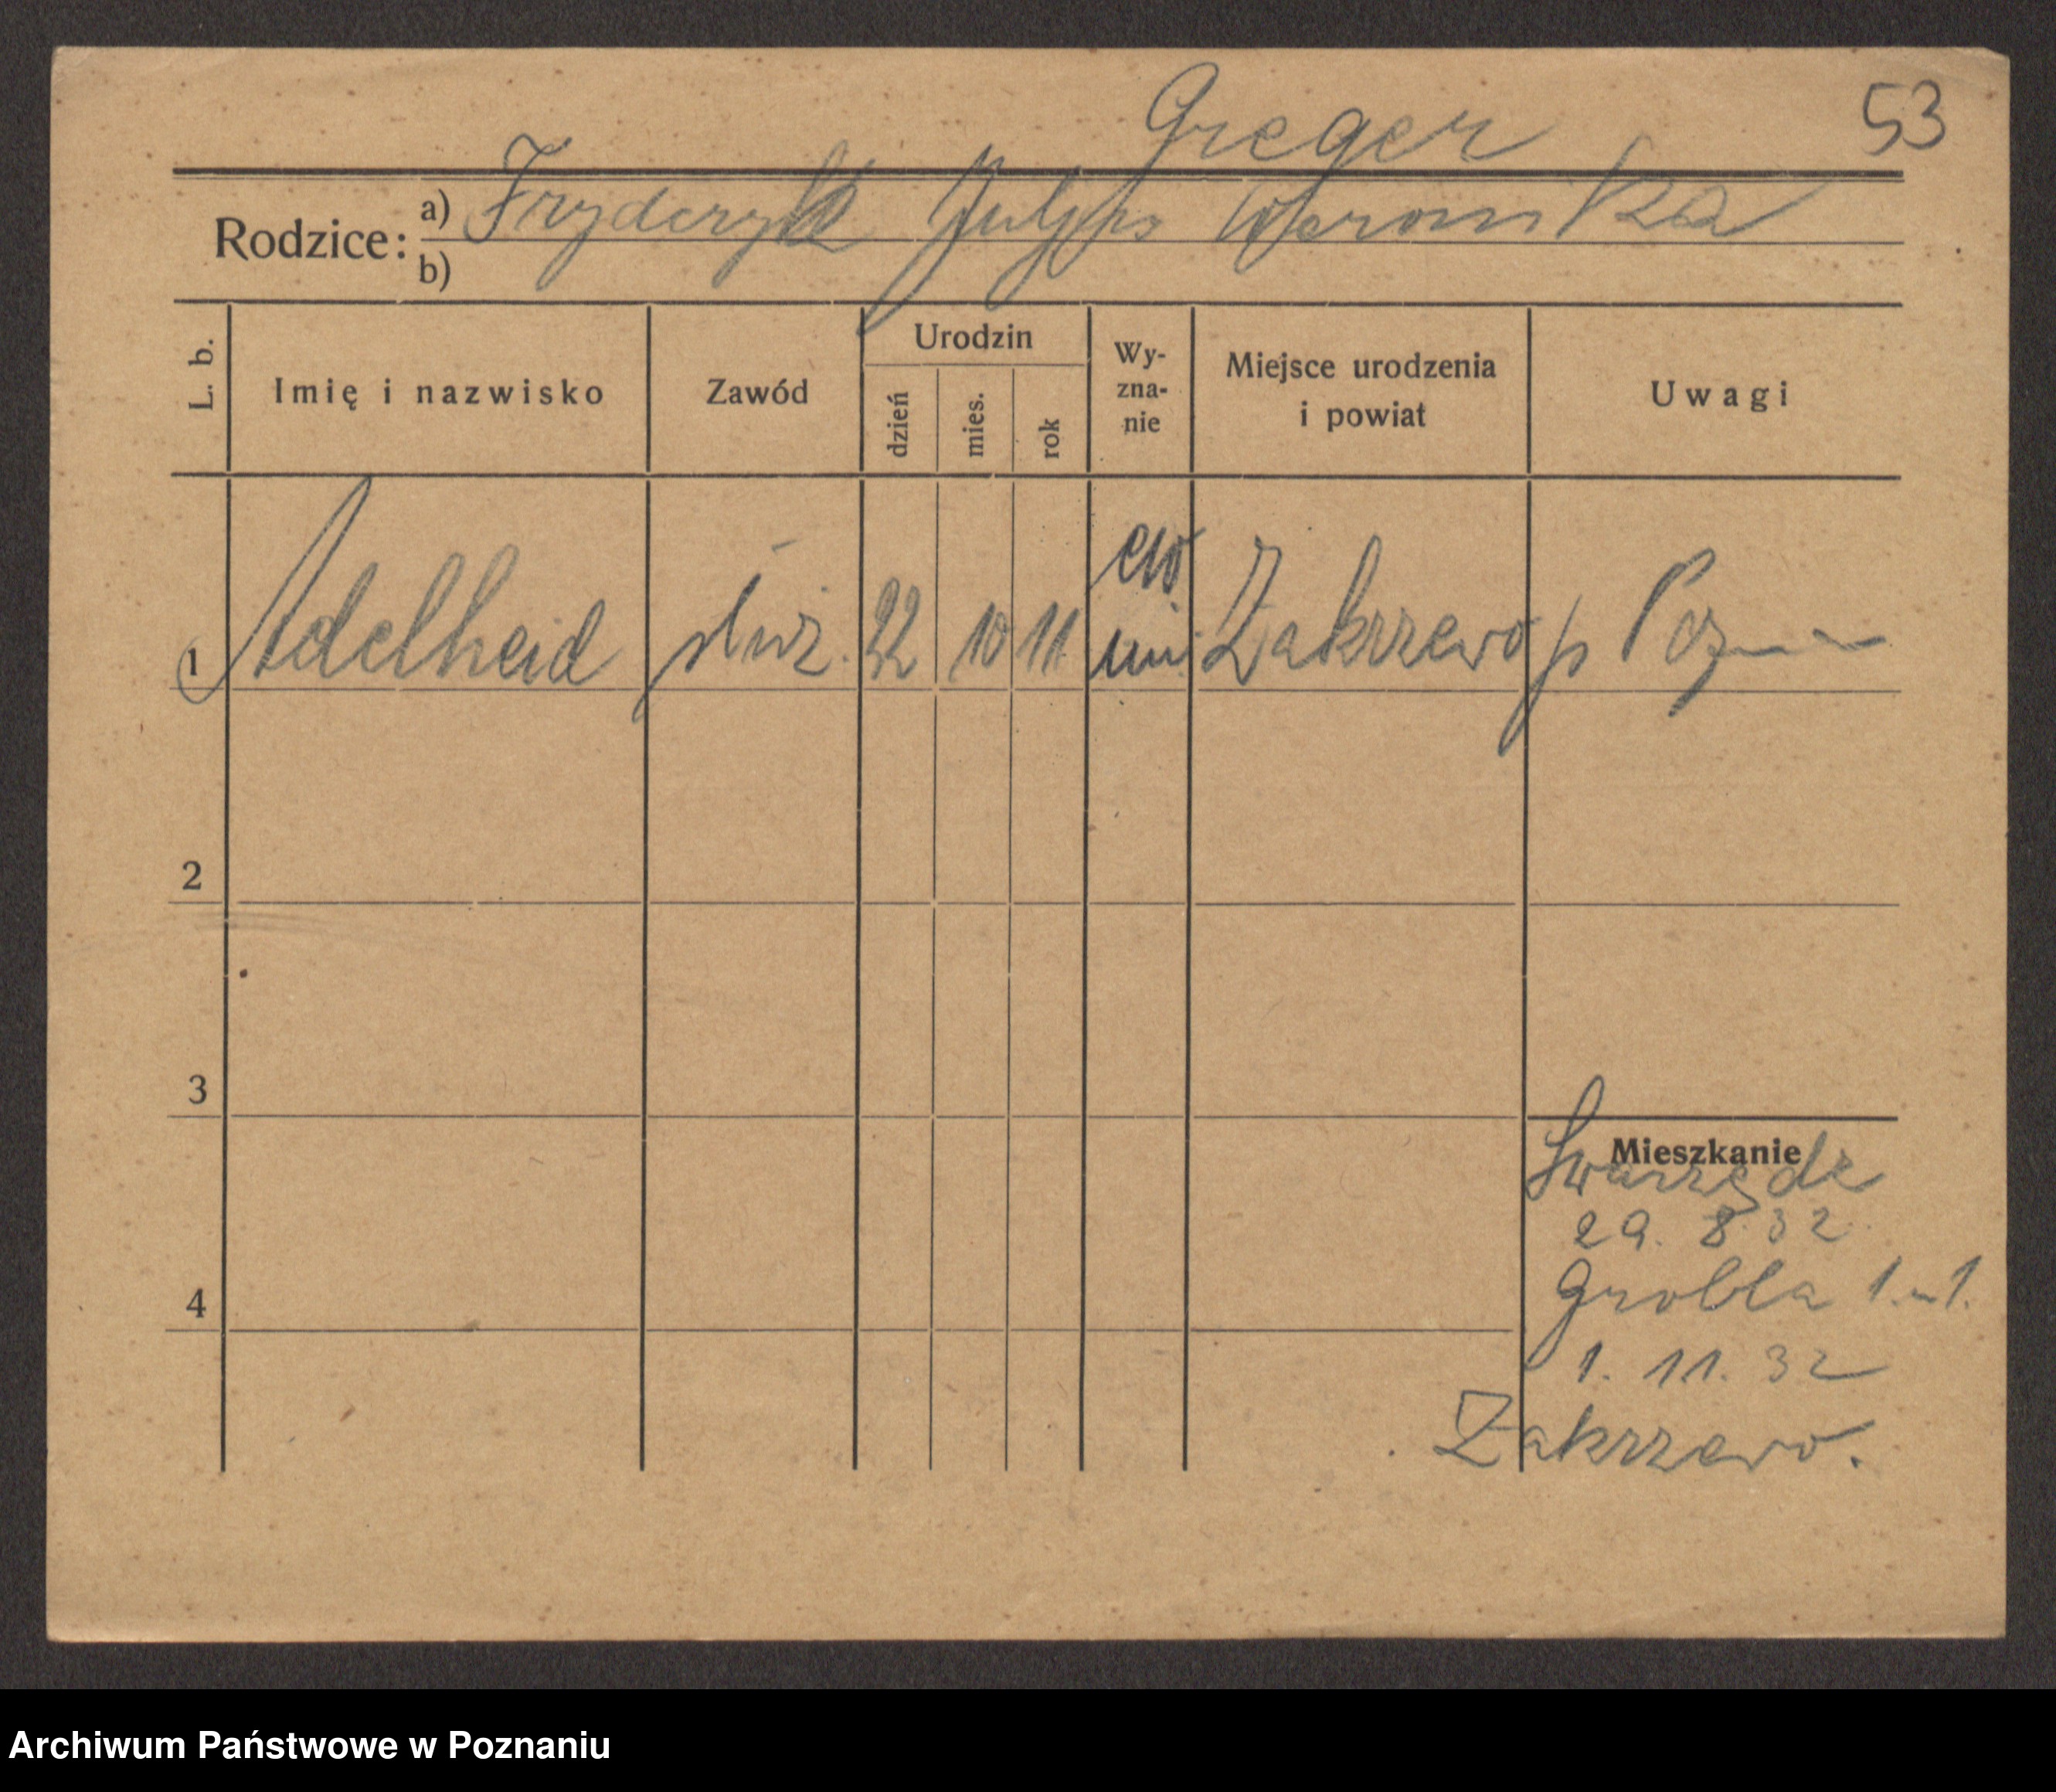 53
Greger
Rodzice: a) Fryderyk Weronika
b)
L. b. Imię i nazwisko Zawód Urodzin dzień mies. rok Wy-zna-nie Miejsce urodzenia i powiat Uwagi
1 Adelheid służ. 22 10 11 ew uni. Zakrzewo p Pozn
2
3
Mieszkanie
Swarzędz
29. 8 32
Grobla 1 m 1.
4
1. 11. 32
Zakrzewo.
Archiwum Państwowe w Poznaniu